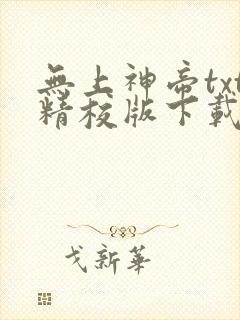 無上神帝txt
精校版下載
戈新華